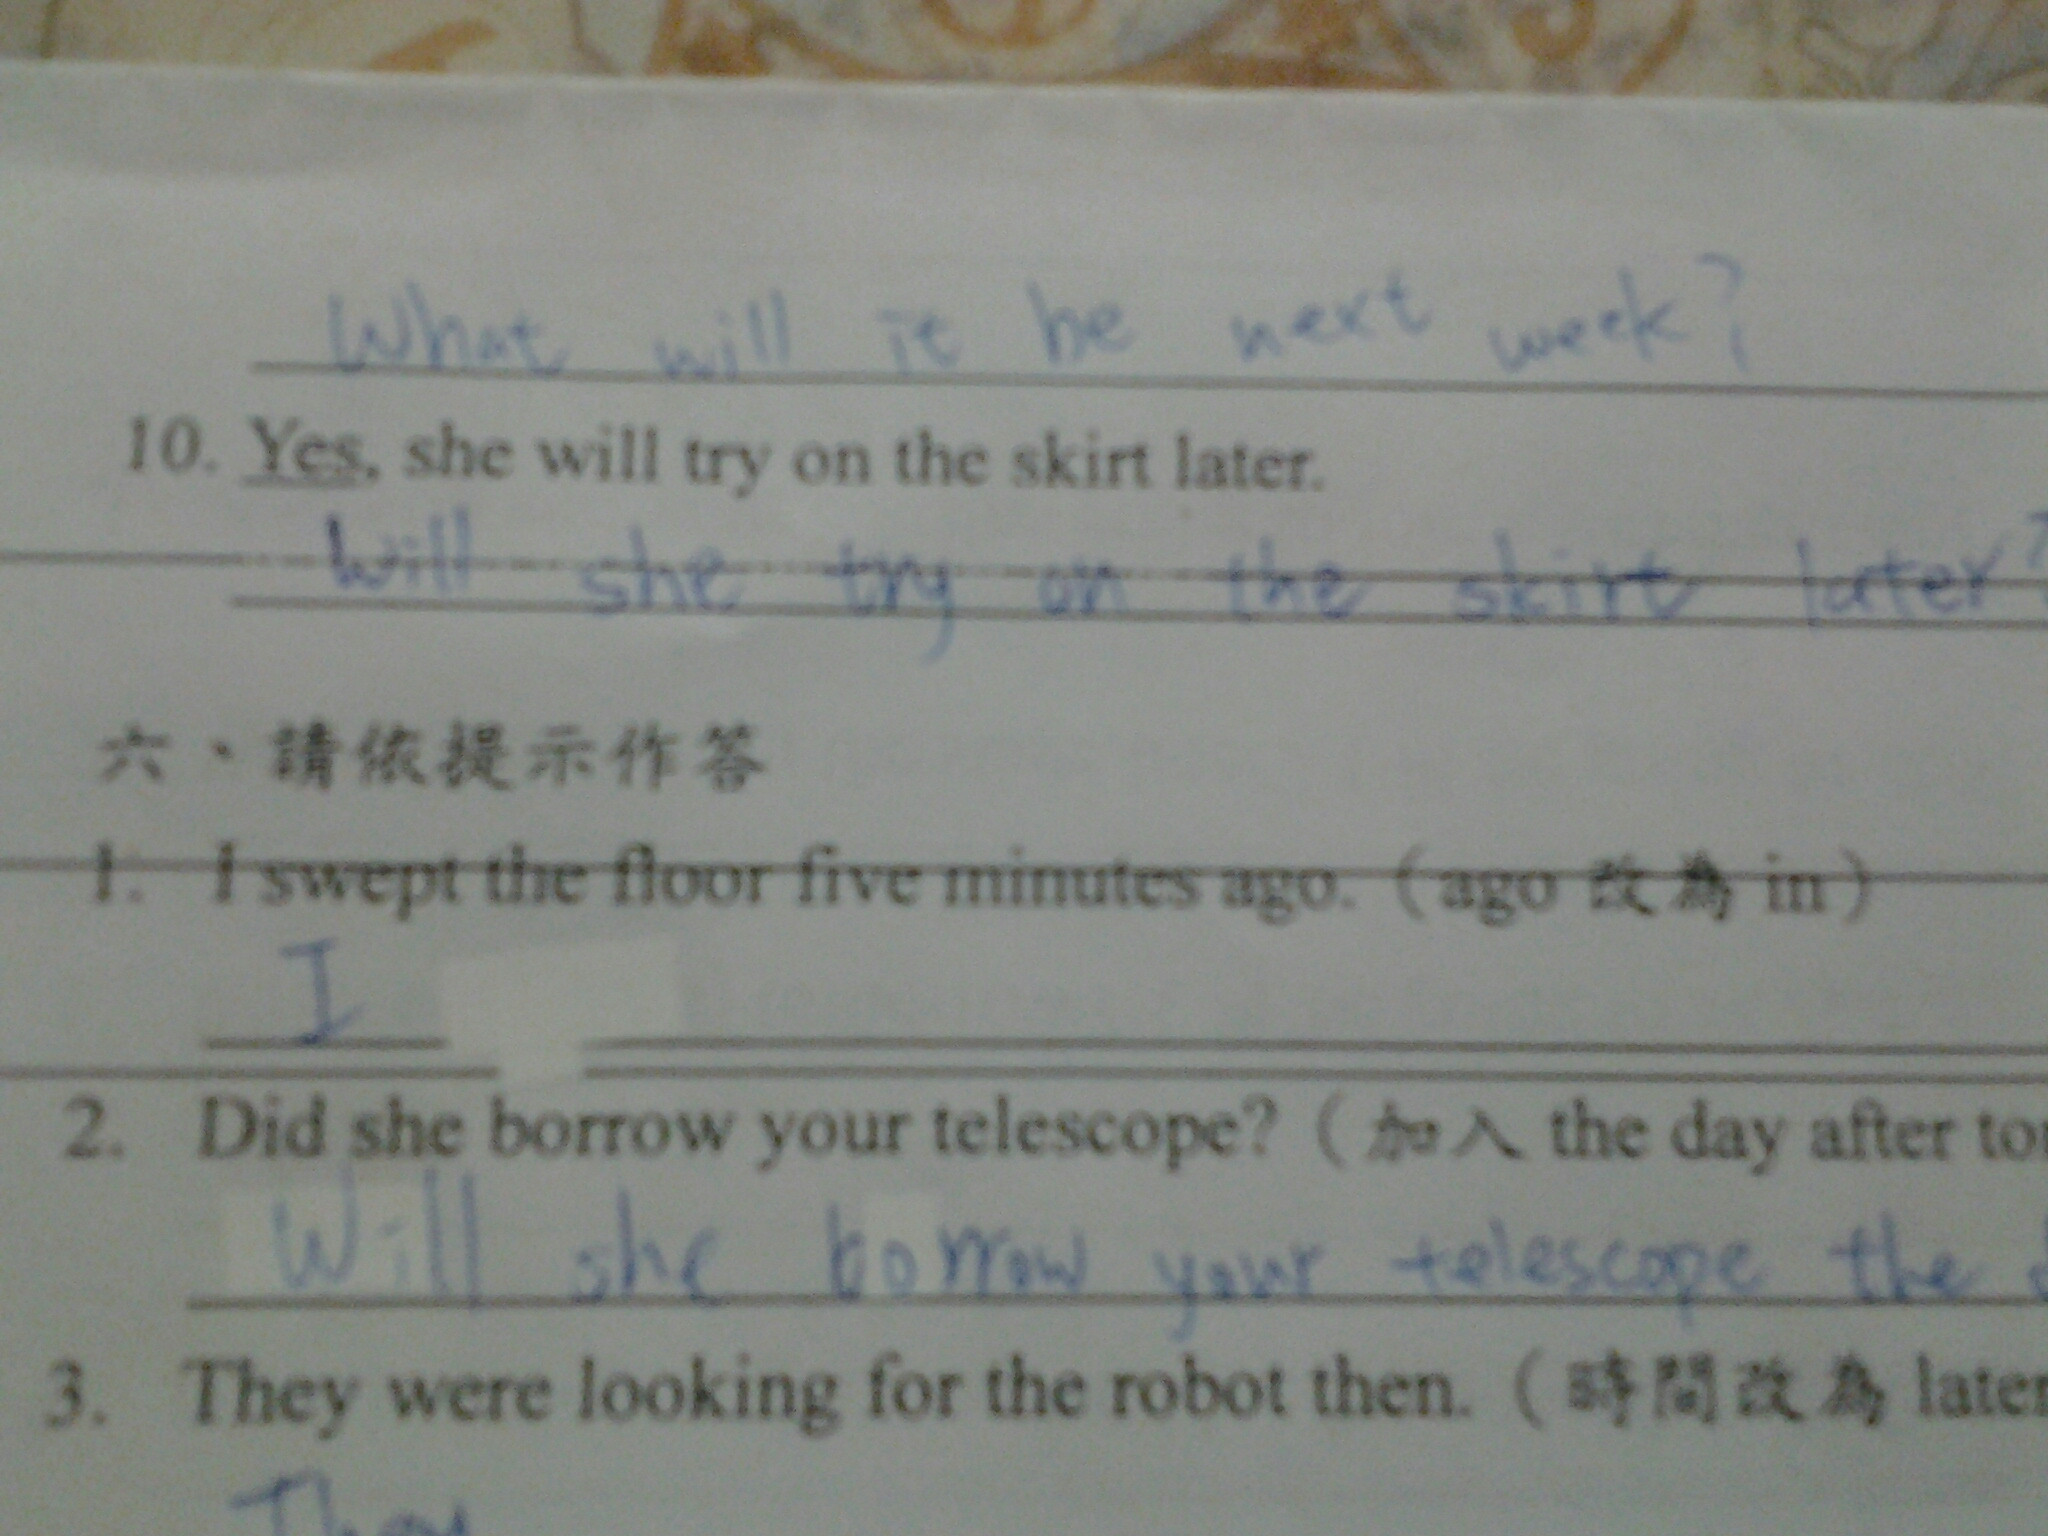 What will it be next week?
10. Yes, she will try on the skirt later.
Will she try on the skirt later?
六、請依提示作答
1. I swept the floor five minutes ago.（ago 改為 in）
I
2. Did she borrow your telescope?（加入 the day after
Will she borrow your telescope the
3. They were looking for the robot then.（時間改為 later
They